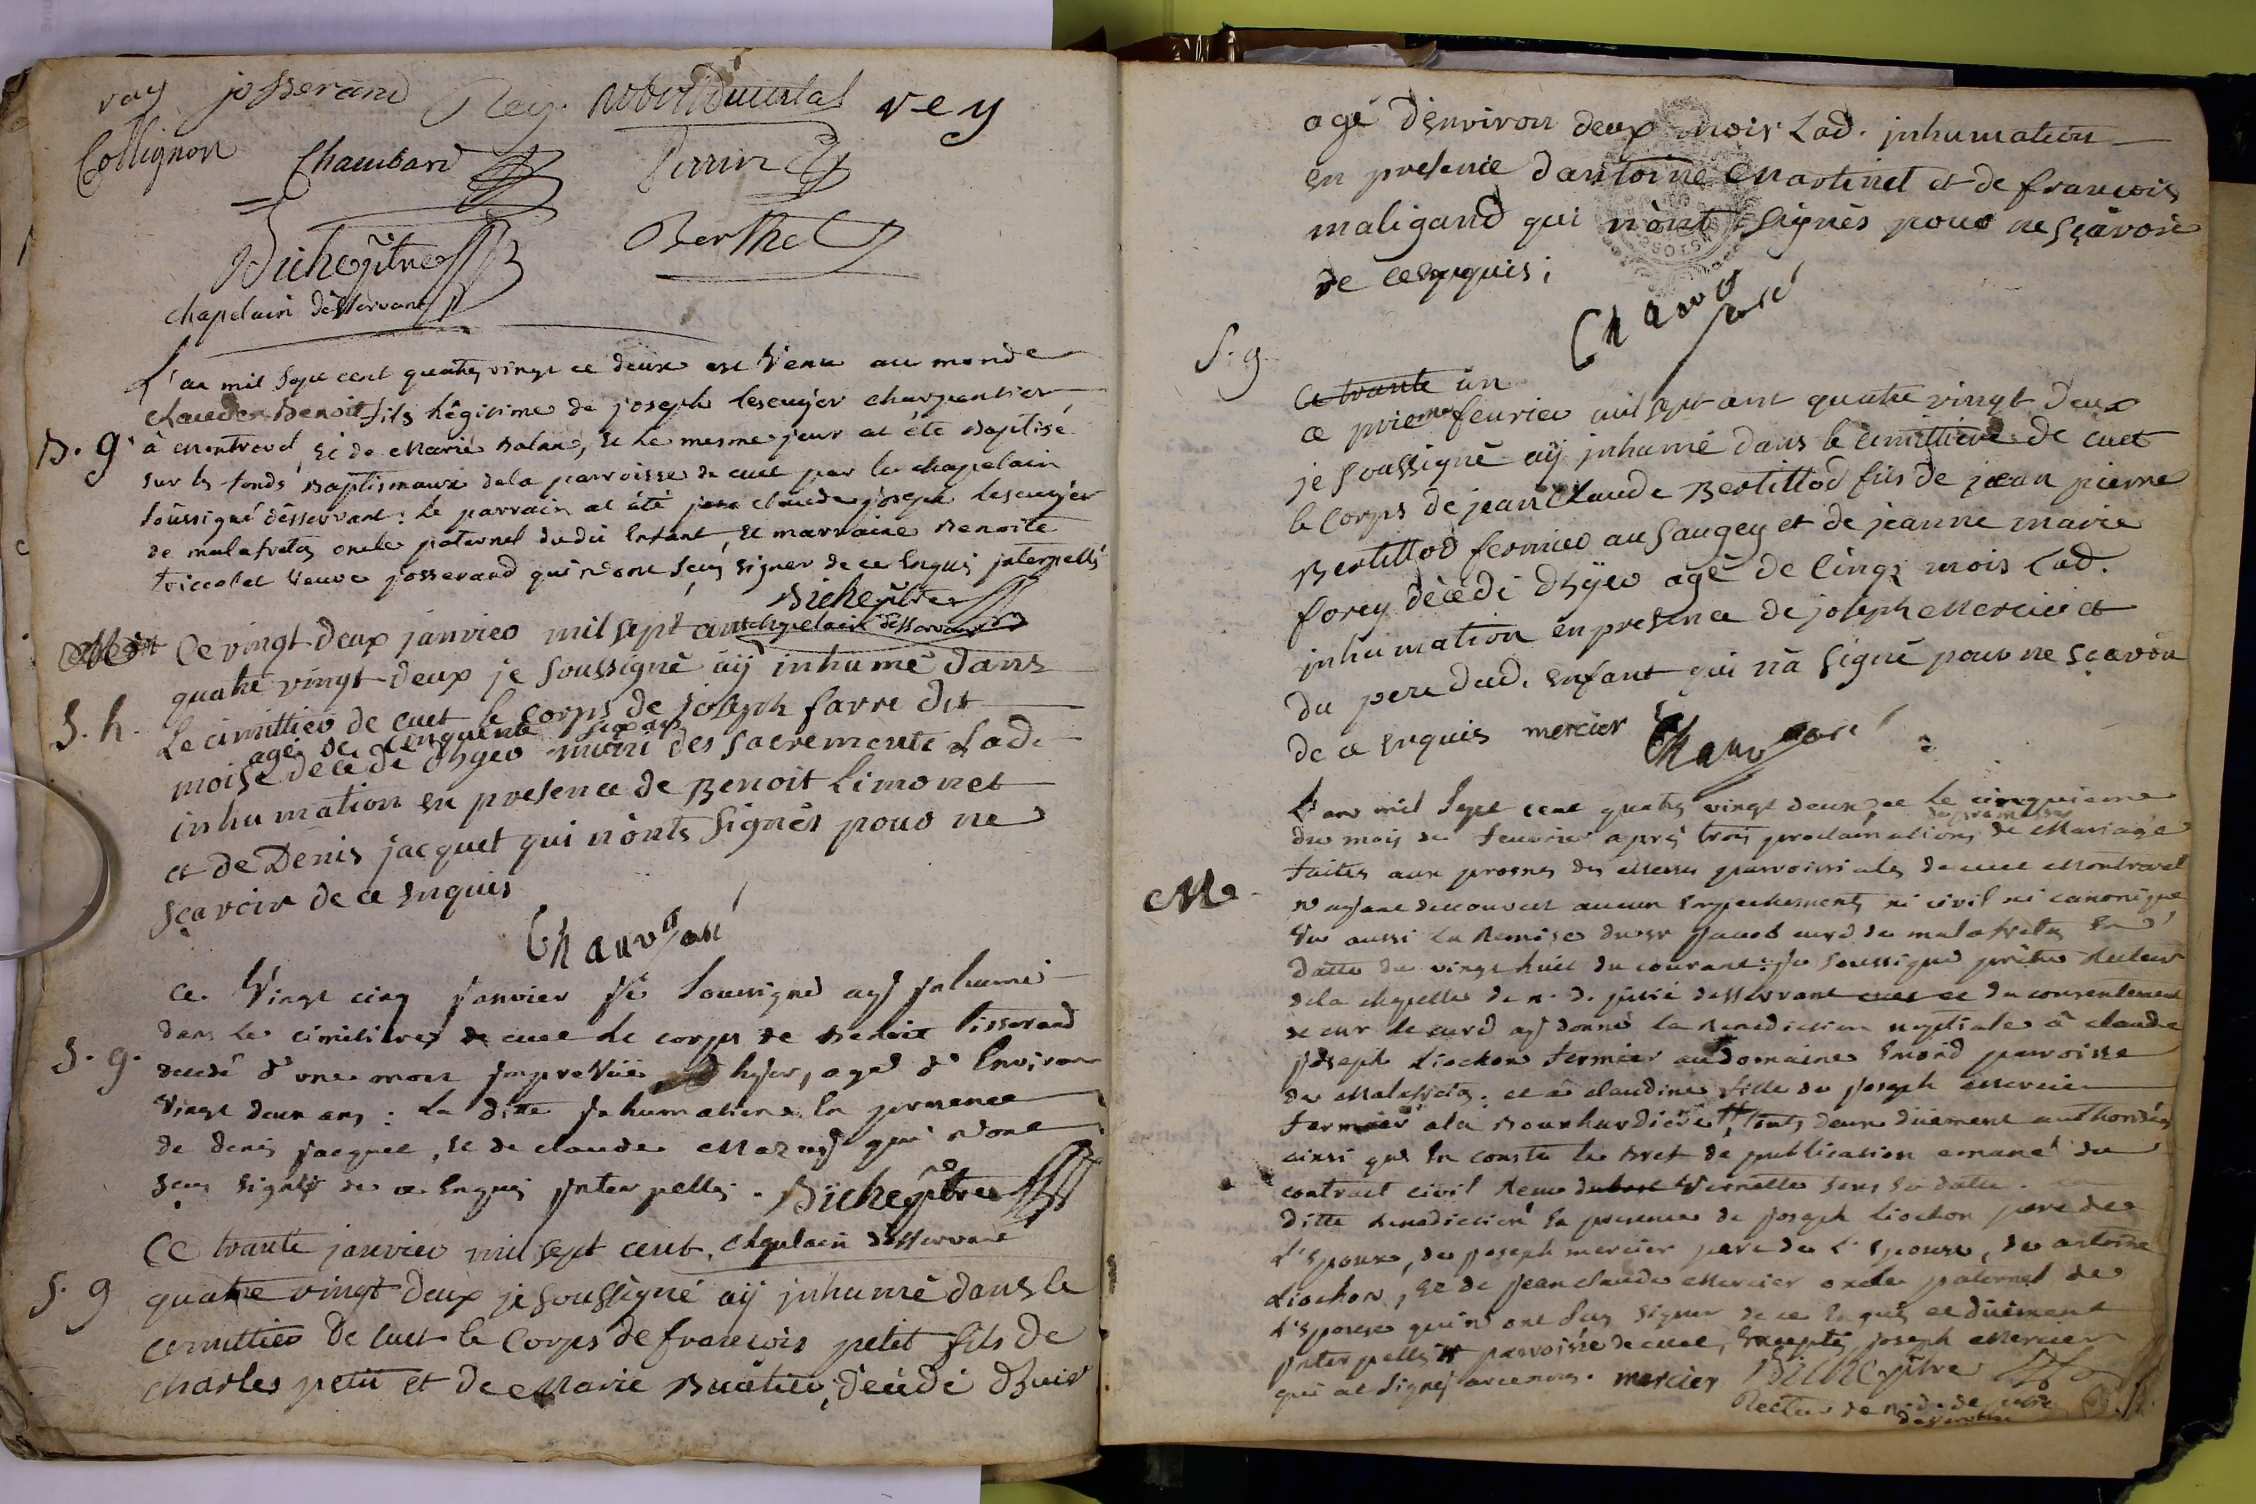 vay josserand Rey vey
Collignon Chambard Perrin
Biche ptre Berthet
chapelain désservant
L'an mil sept cent quatre vingt et deux est venu au monde
claude Benoit fils légitime de joseph lescuyer charpentier
B. g. à montrevel, et de Marie Balan, et le mesme jour at été Baptisé
sur les fonds Baptismaux de la parroisse de cuet par le chapelain
soussigné désservant : le parrain at été claude joseph lescuyer
de malafretas oncle paternel dudit Enfant, et marraine Benoite
veuve josserand qui n'ont sçus signer de ce Enquis interpellés
Biche ptre
chapelain désservant
Ce vingt deux janvier mil sept cent
quatre vingt deux je soussigné aÿ inhumé dans
S. h. Le cimittiere de cuet le corps de joseph favre dit
agé de cinquante six ans
moise décédé d'hyer muni des sacrements Lad.
inhumation en presence de Benoit Limonet
et de Denis jacquet qui n'onts signés pour ne
sçavoir de ce enquis
Chauv curé
Ce vingt cinq janvier je soussigné aÿ inhumé
dans le cimitiere de cuet le corps de Benoit Tisserand
S. g. décédé d'une mort imprevüe d'hyer, agé d'Environ
vingt deux ans : la ditte inhumation En presence
de denis jacquet, et de claude qui n'ont
sçus signé de ce Enquis interpellés. Biche ptre
chapelain désservant
Ce trante janvier mil sept cent
S. g quatre vingt deux je soussigné aÿ inhumé dans le
cimittiere de Cuet le Corps de francois petit fils de
charles petit et de Marie décédé d'huer
agé d'environ deux mois Lad. inhumation
en presence d'antoine Martinet et de francois
maligand qui n'ont signés pour ne sçavoir
de ce enquis ;
Chauv curé
S. g. ce trante un
ce priemer feurier mil sept cent quatre vingt deux
je soussigné aÿ inhumé dans le cimittiere de cuet
le Corps de jean Claude Bertillod fils de jean pierre
Bertillod fermier au saugey et de jeanne marie
forey décédé d'hÿer agé de Cinq mois Lad.
inhumation en presence de joseph Mercier et
du pere dud. enfant qui n'a signé pour ne sçavoir
de ce enquis mercier Chauv curé
L'an mil sept cent quatre vingt deux, et le cinquieme
du mois de feuvrier après trois proclamations de Mariage
faites aux prosnes des Messes parroissiales de cuet Montrevel
M. n'ayant decouvert aucun Empechements ni civil ni canonique
vu aussi la Remise du sr jacob curé de malafretas En
datte du vingt huit du courant : je soussigné prêtre Recteur
de la chapelle de n. d. desservant cuet et du consentement
de mr le curé aÿ donné la Benediction nuptiale à claude
joseph Liochon fermier au domaine parroisse
de Malafretas. et a claudine fille de joseph Mercier
fermier a la touts deux düement authorisés
ainsi que En conste le Bret de publication emané du
contract civil Reçu Vernette sous sa datte.
ditte Benediction En presence de joseph Liochon pere de
l'Epoux, de joseph mercier pere de l'Epouse, de antoine
Liochon, et de jean claude Mercier oncle paternel de
l'Epouse qui n'ont sçus signer de ce Enquis et düement
interpellés parroisse de cuet, Excepté joseph Mercier
qui at signé avec nous. mercier Biche ptre
Recteur de n. d. de
desservant